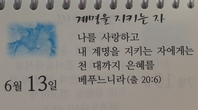 계명을 지키는 자
나를 사랑하고
내 계명을 지키는 자에게는
천 대까지 은혜를
베푸느니라 (출 20:6)
6월 13일